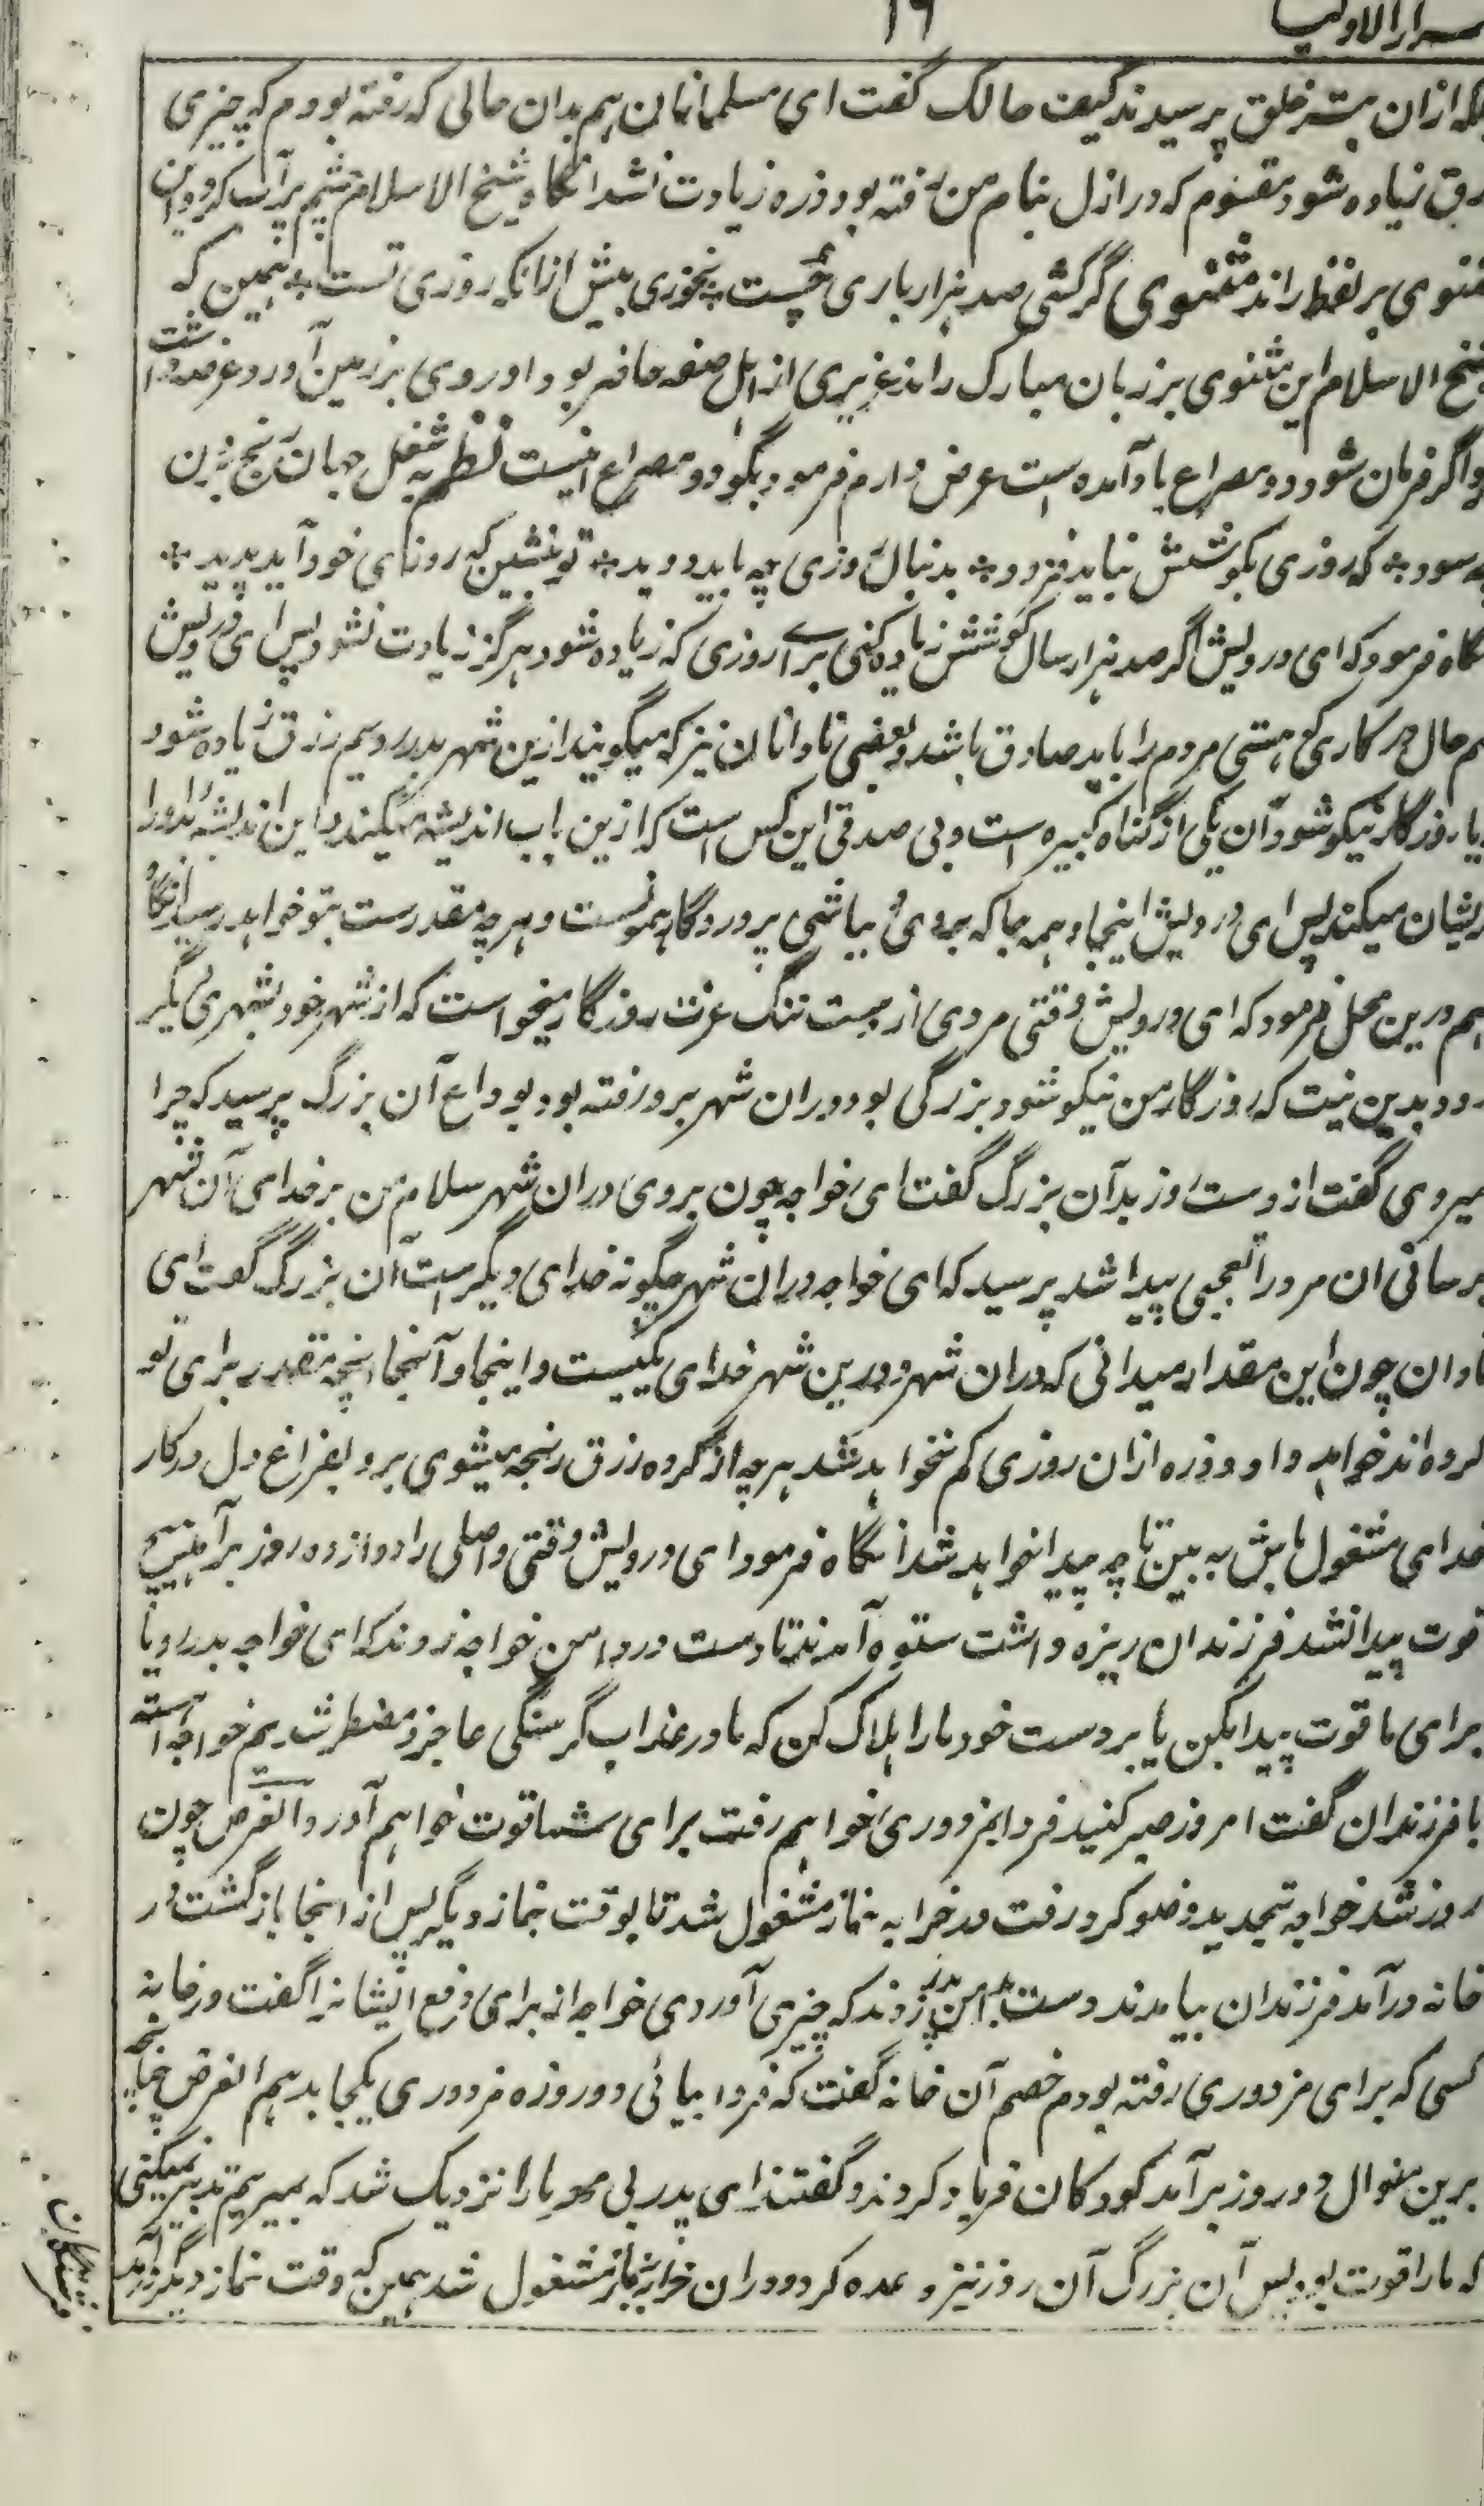 ۱۶
سرار الاولیا
ازان بیشتر خلق پرسیدند کیف حالک گفت ای مسلمانان هم بدان حالی که رفته بودم که چیزی
رزق زیاده شود مقسوم که در ازل بنام من رفته بود ذره زیادت نشد انگاه شیخ الاسلام چشم پرآب کرد و این
مثنوی بر لفظ راند مثنوی گر گشی صد هزار باری چست ٭ نخوری بیش از انکه روزی تست ٭ همین که
شیخ الاسلام این مثنوی بر زبان مبارک راند عزیزی از اهل صفه حاضر بود او روی بر زمین آورد و عرضداشت
و اگر فرمان شود دو مصراع یاد آمده است عرض دارم فرمود بگو دو مصراع اینست نظم به شغل جهان رنج بردن
چه سود ٭ که روزی بکوشش نباید فزود ٭ بدنبال روزی چه باید دوید ٭ تو بنشین که روزی خود آید پدید ٭
انگاه فرمود که ای درویش اگر صد هزار سال کوشش زیاده کنی برای روزی که زیاده شود هرگز زیادت نشود پس ای درویش
هم حال در کاری که هستی مردم را باید صادق باشد و بعضی نادانان نیز که میگویند ازین شهر بدر رویم رزق زیاده شود
یا روزگار نیکو شود آن یکی از گناه کبیره است و بی صدقی این کس است که ازین باب اندیشه میکند و این اندیشه او را
پریشان میکند پس ای درویش اینجا و همه جا که بروی و بباشی پروردگار همونست و هرچه مقدرست بتو خواهد رسید انگاه
هم درین محل فرمود که ای درویش وقتی مردی از جهت تنگ عزت روزگار میخواست که از شهر خود بشهری دیگر
رود بدین نیت که روزگار من نیکو شود بزرگی بود دران شهر برو رفته بود بوداع آن بزرگ پرسید که چرا
میروی گفت از دست روز بد آن بزرگ گفت ای خواجه چون بروی دران شهر سلام من بر خدای آن شهر
برسانی ان مرد را تعجبی پیدا شد پرسید که ای خواجه دران شهر چگونه خدای دیگر است آن بزرگ گفت ای
نادان چون این مقدار میدانی که دران شهر و درین شهر خدای یکیست و اینجا و آنجا انچه مقدر برای تو
کرده اند خواهد داد و ذره ازان روزی کم نخواهد شد هرچه از گروه رزق رنجه میشوی برو بفراغ دل در کار
خدای مشغول باش به بین تا چه پیدا خواهد شد انگاه فرمود ای درویش وقتی واصلی را دوازده روز برآمد هیچ
قوت پیدا نشد فرزندان ریزه داشت ستوه آمدند تا دست در دامن خواجه زدند که ای خواجه بدر رو یا
برای ما قوت پیدا بکن یا بر دست خود ما را هلاک کن که ما در عذاب گرسنگی عاجز و مضطر شدیم خواجه آهسته
با فرزندان گفت امروز صبر کنید فردا بمزدوری خواهم رفت برای شما قوت خواهم آورد الغرض چون
روز شد خواجه تجدید وضو کرد رفت در خرابه نماز مشغول شد تا بوقت نماز دیگر پس از انجا بازگشت در
خانه درآمد فرزندان بیامدند دست بدامن پدر زدند که چیزی آوردی خواجه از برای دفع ایشان را گفت در خانه
کسی که برای مزدوری رفته بودم خصم آن خانه گفت که فردا بیائی دو روزه مزدوری یکجا بدهم الغرض
برین منوال دو روز برآمد کودکان فریاد کردند و گفتند ای پدر بی مهر ما را نزدیک شد که بمیریم تدبیر نمیکنی
که ما را قوت بود پس آن بزرگ آن روز نیز وعده کرد و دران خرابه بنماز مشغول شد همین که وقت نماز دیگر درآمد